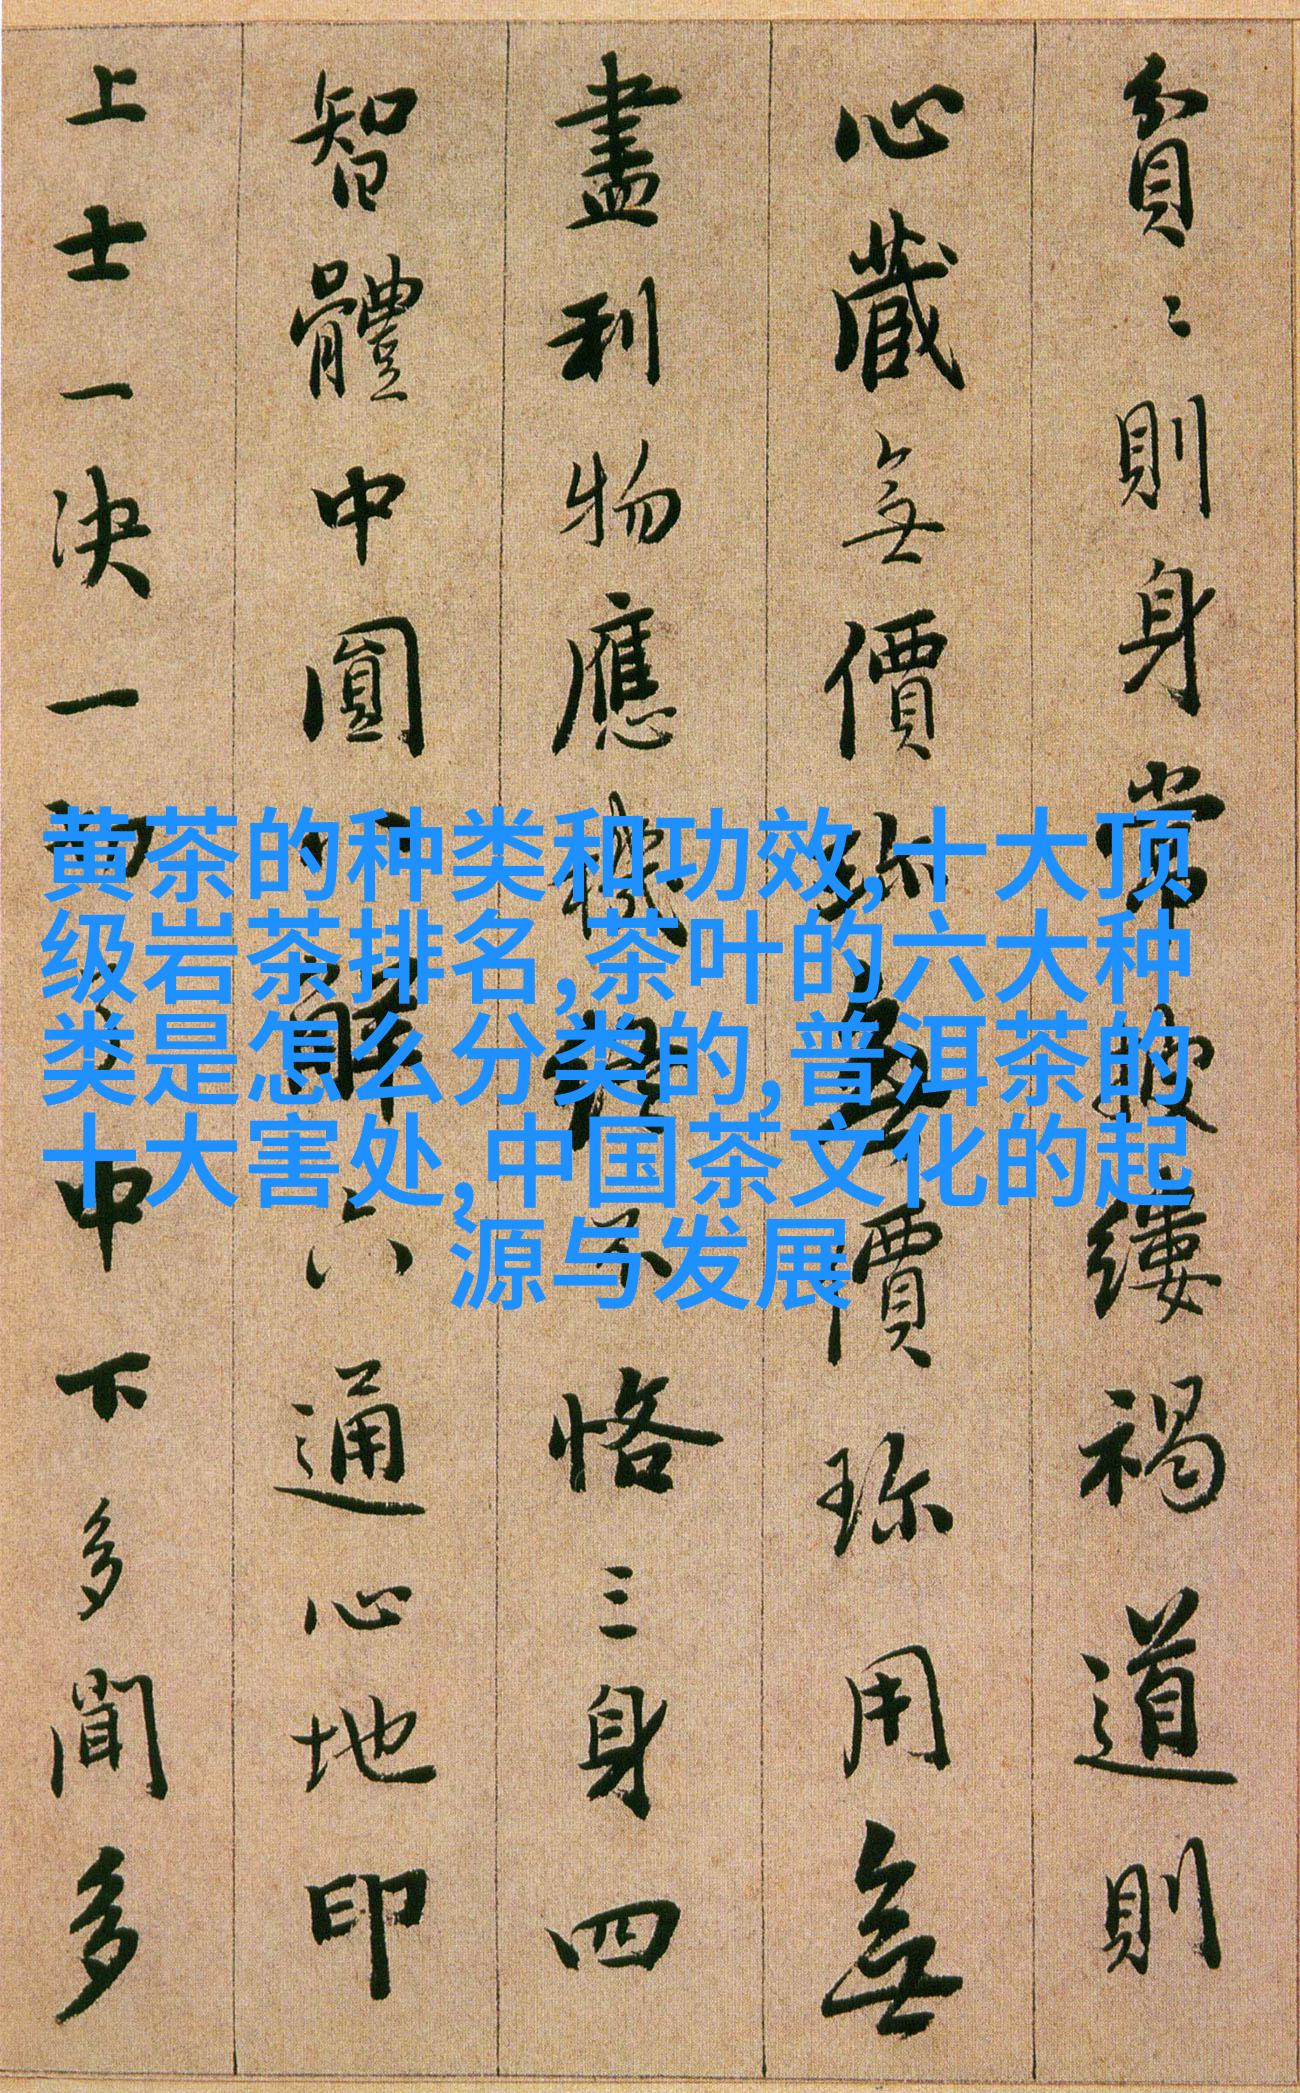 貧〻則身常披縷褐道則
心藏無價珍無價珍用無
盡利物應機不恪三身四
智體中圓解六通心地印
上士一決一中下多聞多
黄茶的种类和功效,十大顶
级岩茶排名,茶叶的六大种
类是怎么分类的,普洱茶的
十大害处,中国茶文化的起
源与发展